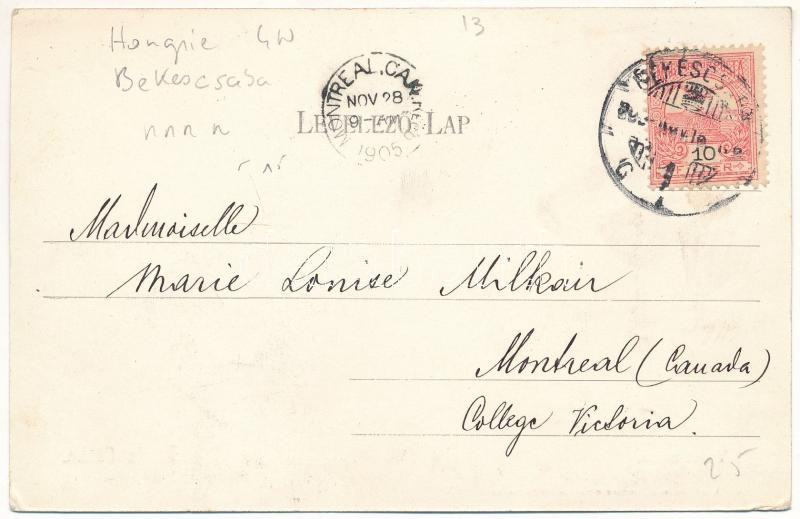 Hongrie GW
13
Békéscsaba
nnnn
MONTREAL, CAN.
NOV 28
9-AM
1905
LEVELEZŐ LAP
BÉKÉSCSABA
10
Mademoiselle
Marie Louise Milkair
Montreal (Canada)
College Victoria.
25